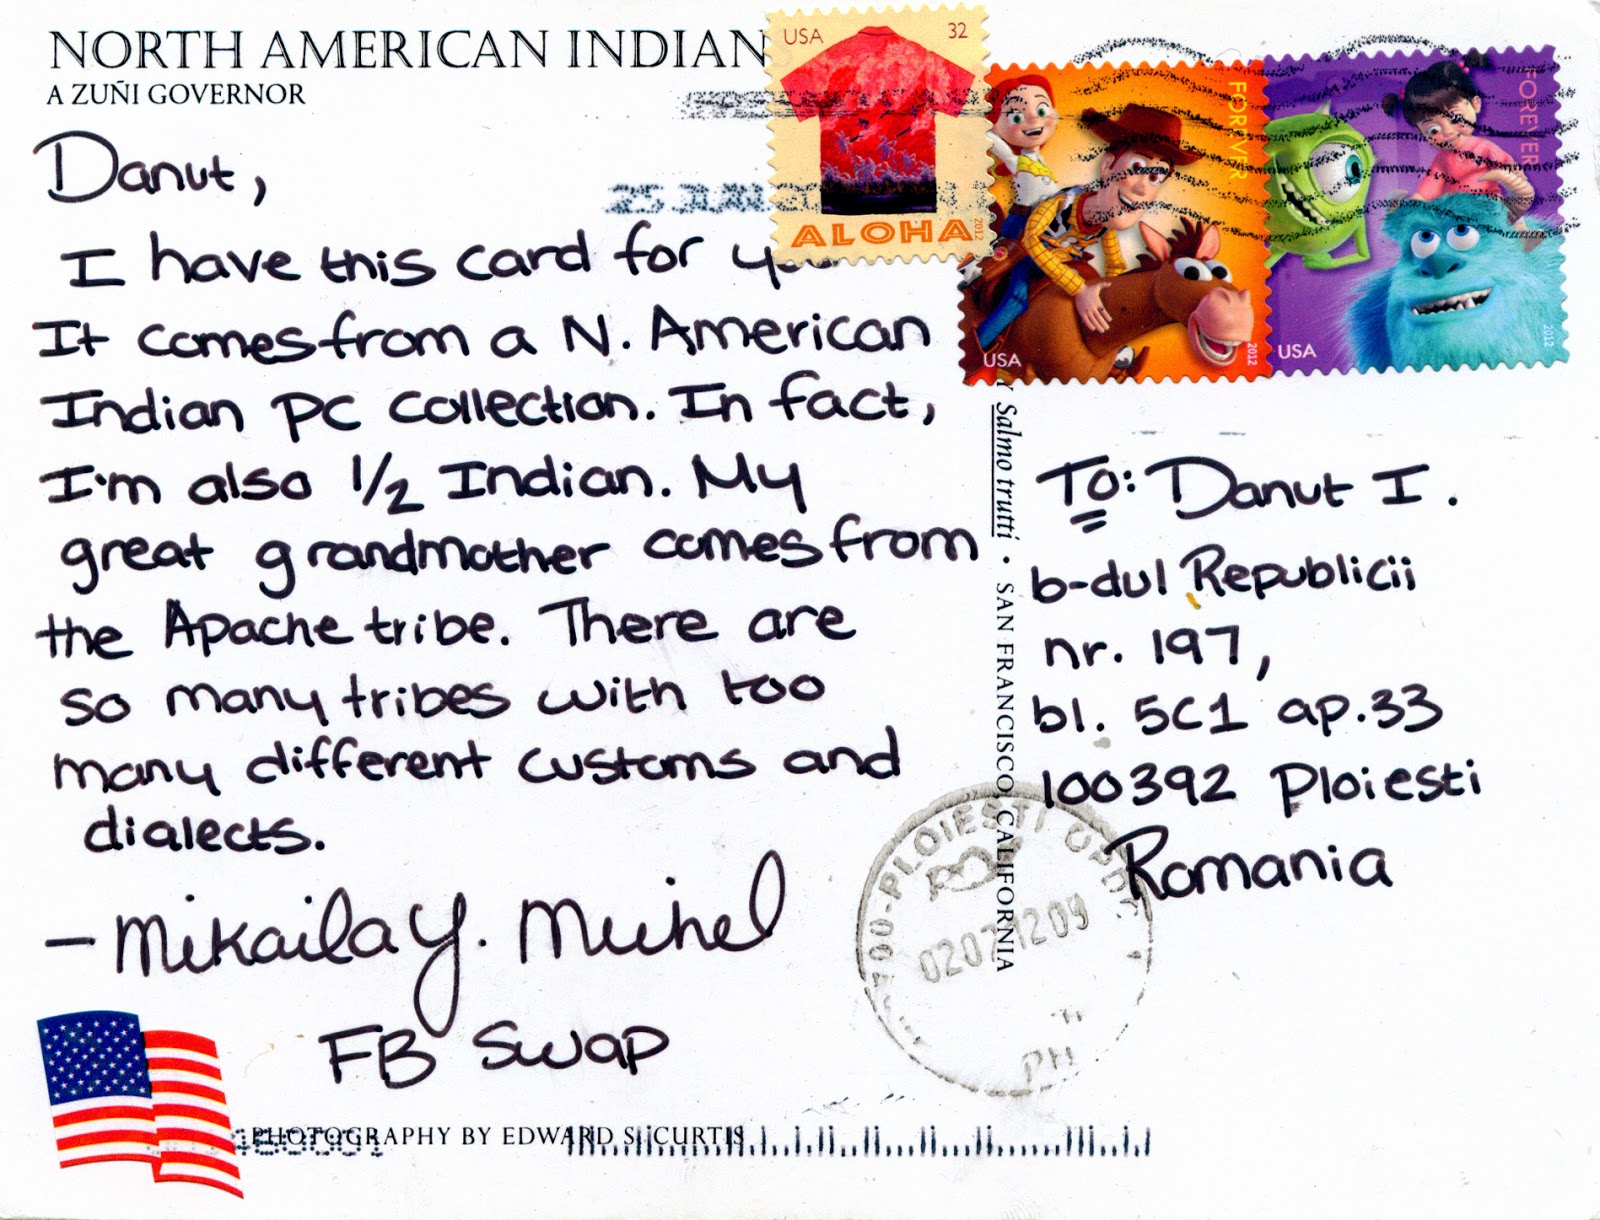 NORTH AMERICAN INDIANS
A ZUÑI GOVERNOR
Danut,
I have this card for you
It comes from a N. American
Indian PC collection. In fact,
I'm also 1/2 Indian. My
great grandmother comes from
the Apache tribe. There are
so many tribes with too
many different customs and
dialects.
- Mikaila Y. Michel
FB Swap
PHOTOGRAPHY BY EDWARD S. CURTIS
USA 32
ALOHA
2012
FOREVER
USA
2012
FOREVER
USA
2012
25 JUN
Salmo trutti • SAN FRANCISCO, CALIFORNIA
TO: Danut I.
b-dul Republicii
nr. 197,
bl. 5C1 ap.33
100392 Ploiesti
Romania
PLOIESTI
PH